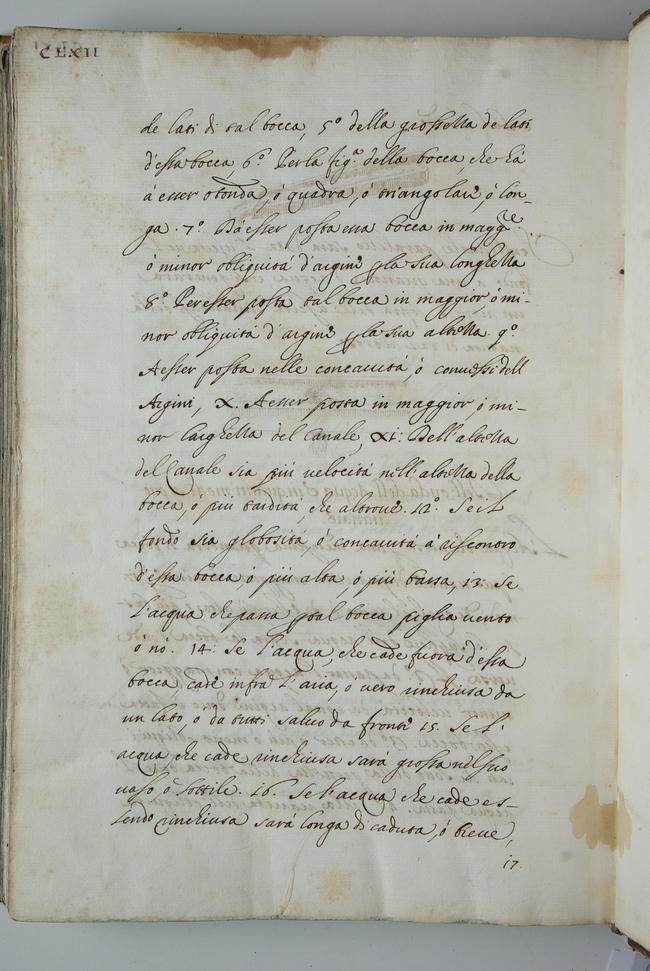 CLXII
de lati di tal bocca, 5º della grossezza de lati
d'essa bocca, 6º. Per la figª. della bocca, che hà
à esser otonda, ó quadra, ó triangolare, ó lon-
ga. 7º. Dá esser posta essa bocca in maggre.
ó minor obliquitá d'argine p la sua longhezza
8º Per esser posta tal bocca in maggior ó mi-
nor obliquitá d'argine p la sua altezza 9º
A esser posta nelle concavitá, ó convessi dell
Argini, X. A esser posta in maggior, ó mi-
nor larghezza del Canale, XI: Dell'altezza
del Canale sia piú velocitá nell'altezza della
bocca, ó piú tardita, che altrove. 12. Se il
fondo sia globositá ó concavitá a' riscontro
d'essa bocca ó piú alta, ó piú bassa, 13: Se
l'acqua che passa p tal bocca piglia vento
ó nó. 14: Se l'acqua, che cade fuora d'essa
bocca, cade infra l'aria, o vero rinchiusa da
un lato, o da tutti salvo da fronte 15. Se l'
acqua che cade rinchiusa sará grossa nel suo
vaso ó sottile. 16. Se l'acqua che cade es-
sendo rinchiusa sará longa di caduta, ó breve,
17.